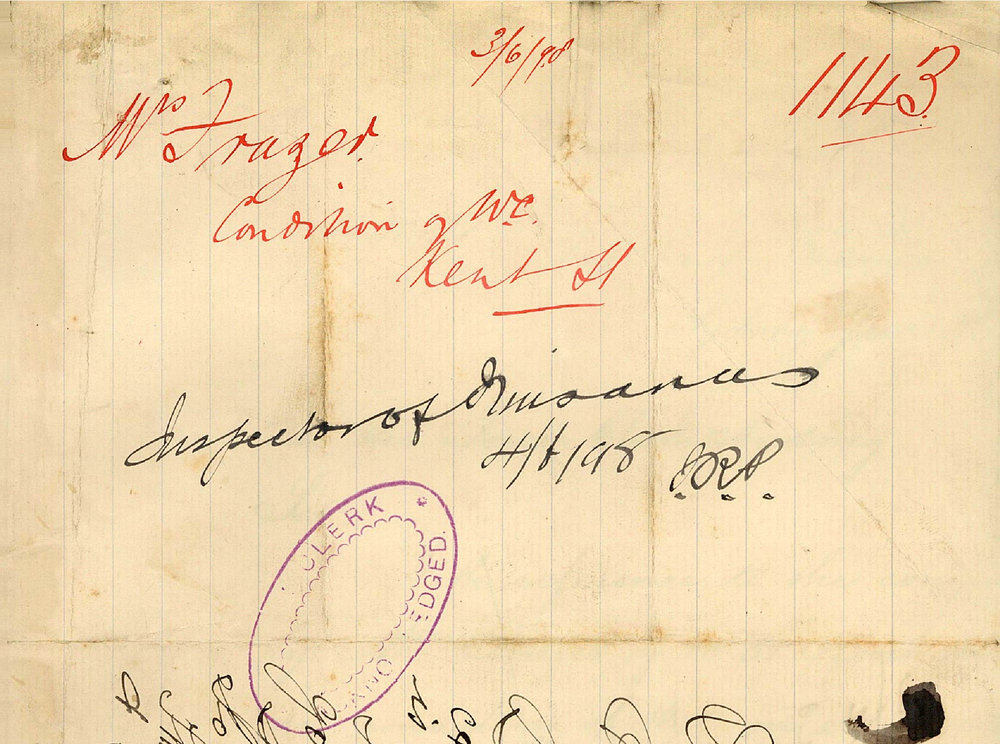 3/6/98
1143
Mrs Frazer.
Condition of W.C.
Kent St
Inspector of Nuisances
4/6/98 J.R.P.
CLERK
EDGED.
is